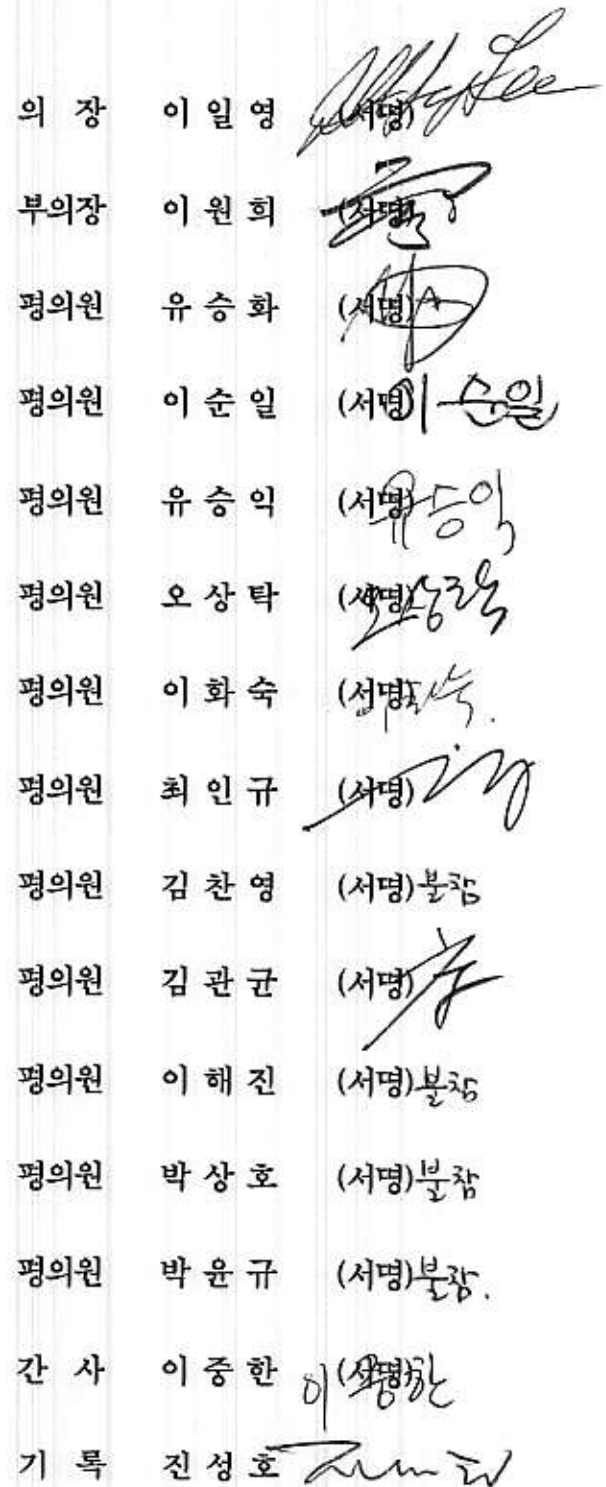 의 장 이 일 영 (서명)
부의장 이 원 희 (서명)
평의원 유 승 화 (서명)
평의원 이 순 일 (서명) 이순일
평의원 유 승 익 (서명) 유승익
평의원 오 상 탁 (서명) 오상탁
평의원 이 화 숙 (서명) 이화숙.
평의원 최 인 규 (서명)
평의원 김 찬 영 (서명) 불참
평의원 김 관 균 (서명)
평의원 이 해 진 (서명) 불참
평의원 박 상 호 (서명) 불참
평의원 박 윤 규 (서명) 불참.
간 사 이 중 한 (서명) 이중한
기 록 진 성 호